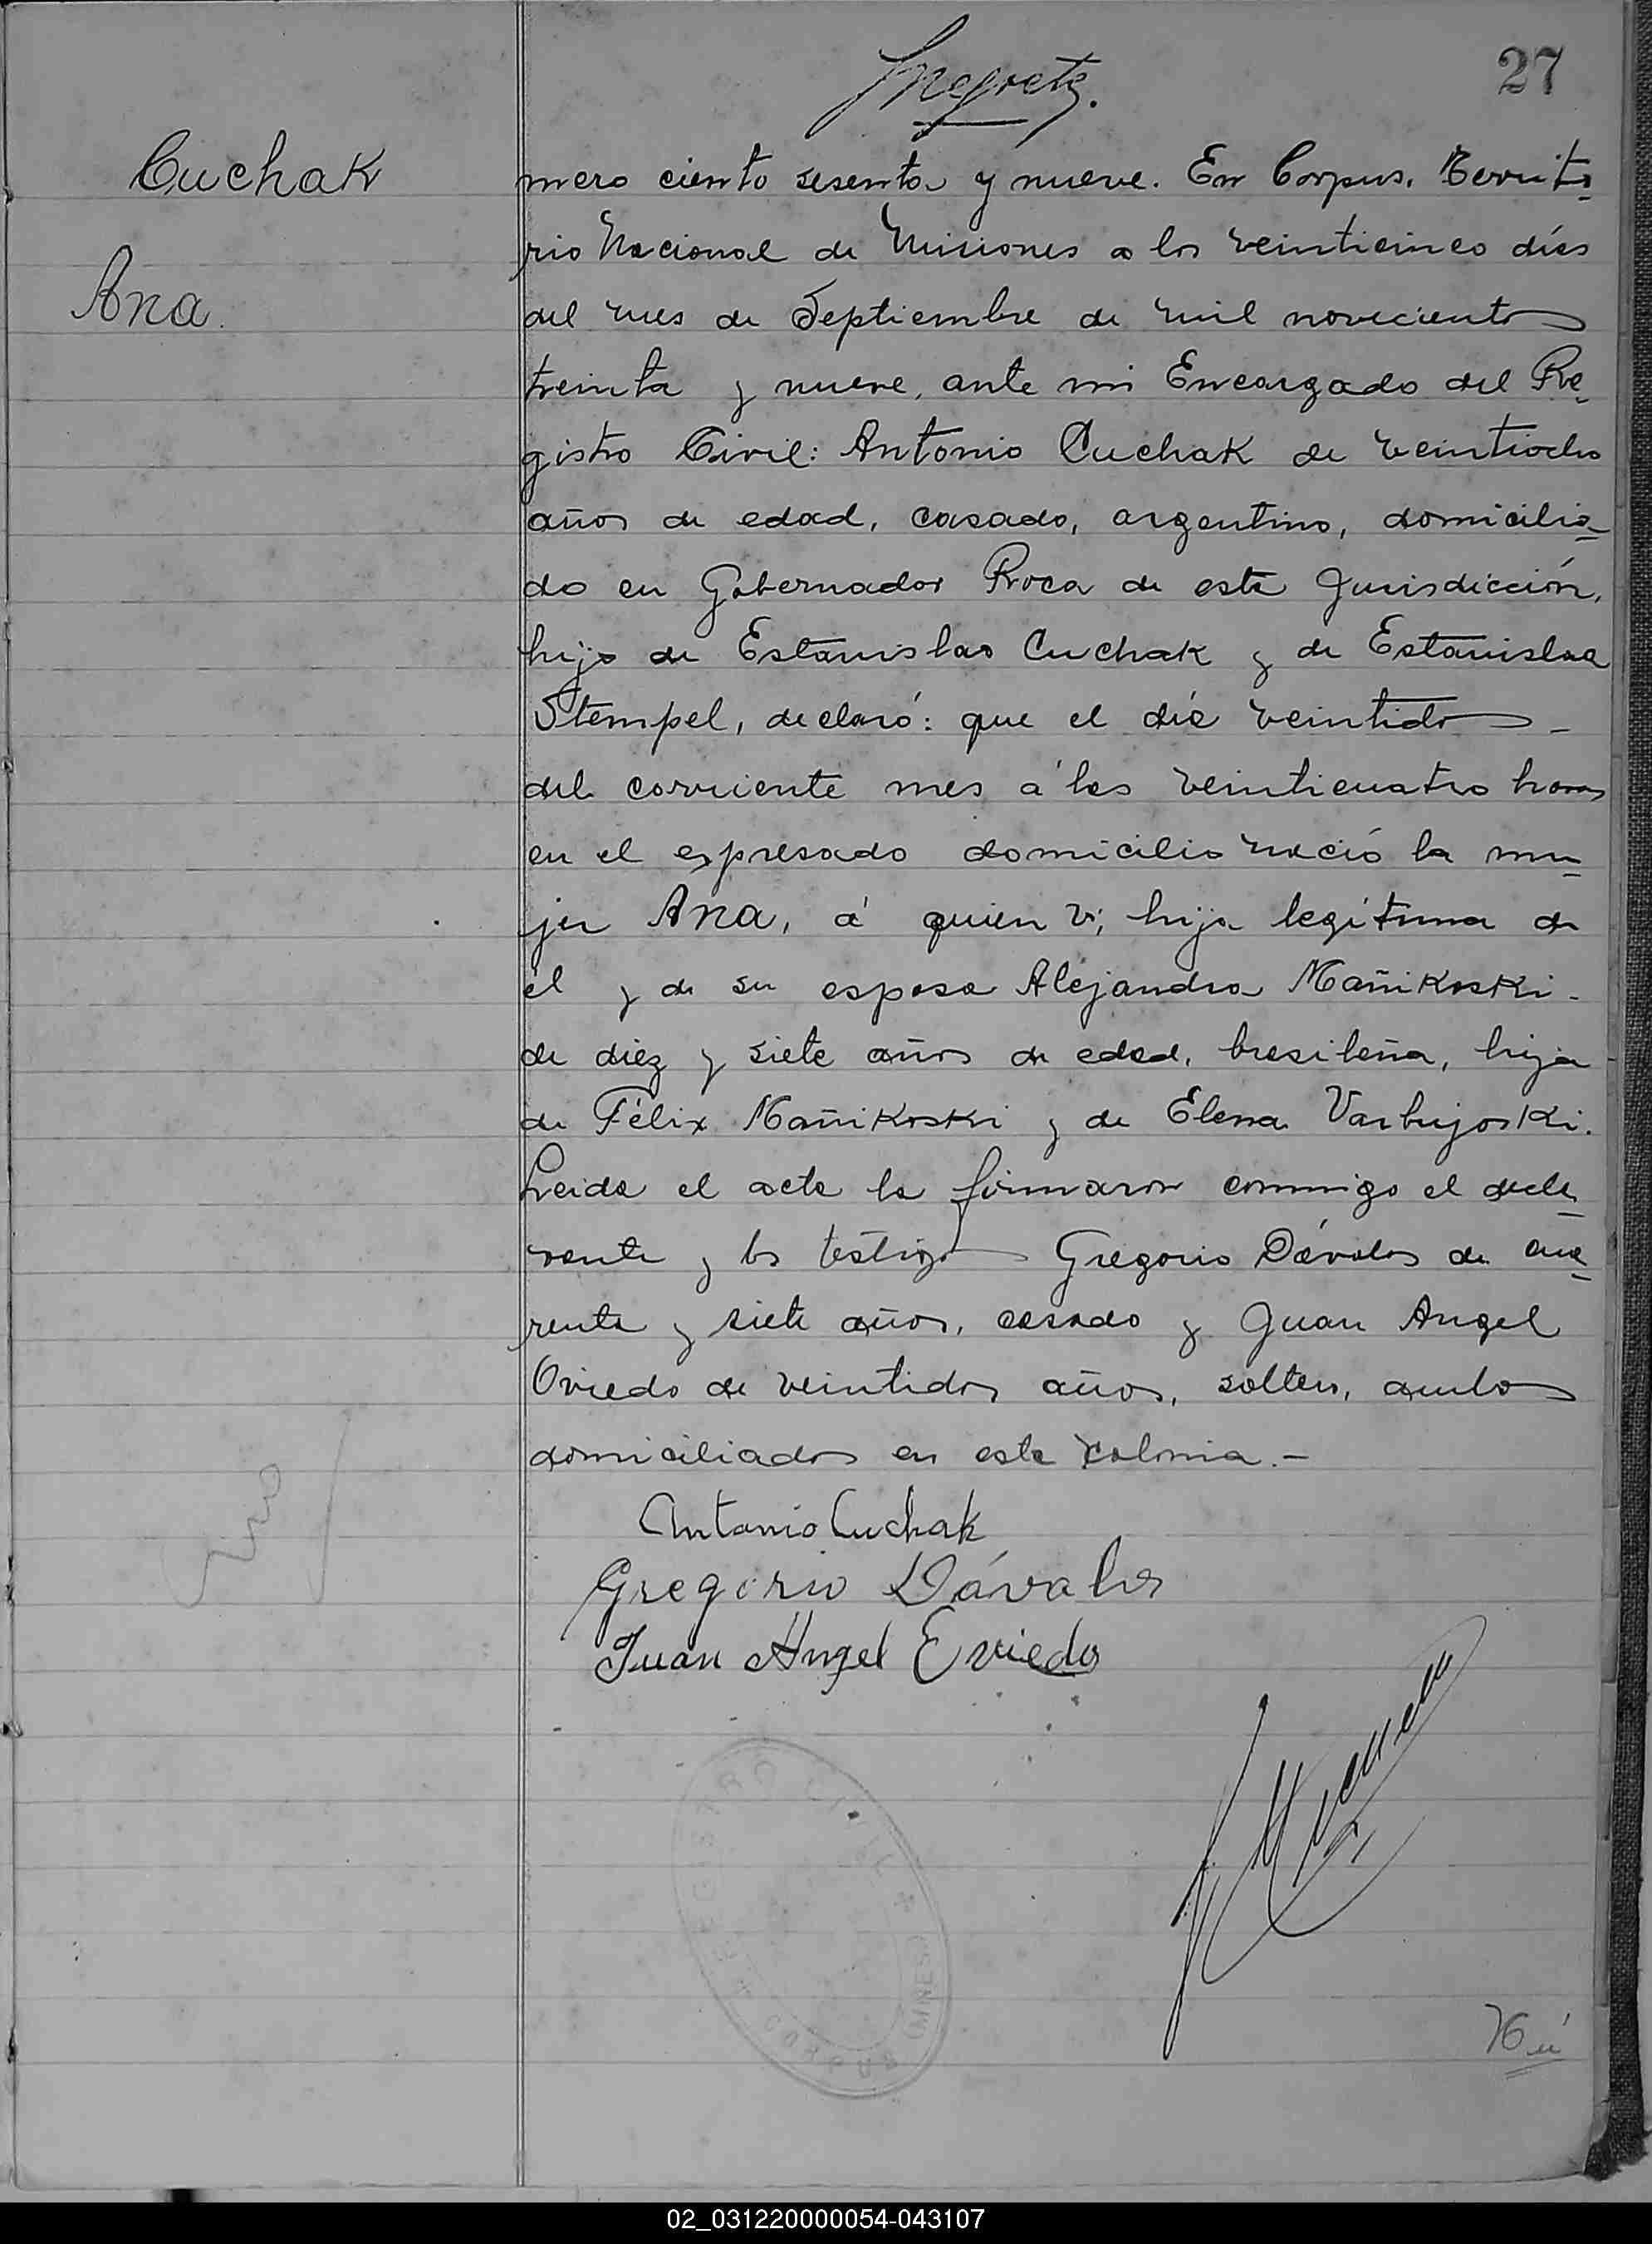 27
Cuchak
Ana.
mero ciento sesenta y nueve. En Corpus. Territo
rio Nacional de Misiones a los veinticinco días
del mes de Septiembre de mil novecientos
treinta y nueve, ante mi Encargado del Re
gistro Civil: Antonio Cuchak de veintiocho
años de edad, casado, argentino, domicilia
do en Gobernador Roca de esta Jurisdicción,
hijo de Estanislao Cuchak y de Estanislaa
Stempel, declaró: que el día veintidos -
del corriente mes a las veinticuatro horas
en el expresado domicilio nació la mu
jer Ana, á quien vi; hija legítima de
el y de su esposa Alejandra Mañikoski -
de diez y siete años de edad, brasileña, hija
de Félix Mañikoski y de Elena Varbujoski.
Leida el acta la firmaron conmigo el decla
rante y los testigos Gregorio Dávalos de cua
renta y siete años, casado y Juan Angel
Oviedo de veintidos años, soltero, ambos
domiciliados en esta colonia. -
Antonio Cuchak
Gregorio Dávalos
Juan Angel Oviedo
REGISTRO CIVIL
* CORPUS (MNES) *
02_031220000054-043107